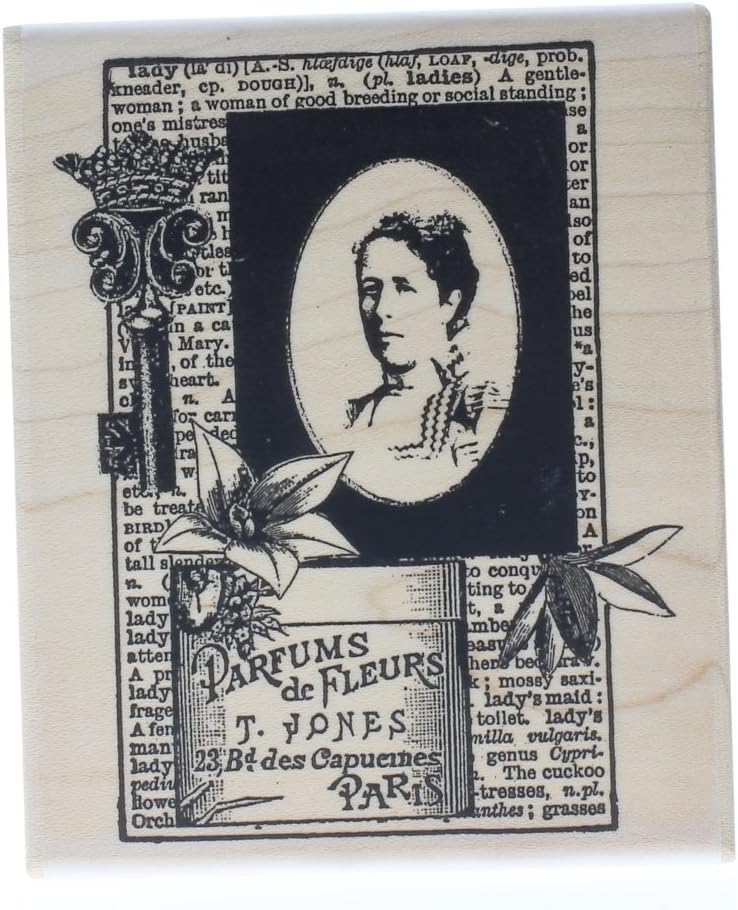 lady (la' di) [A.-S. hlæfdige (hlaf, LOAF, -dige, prob.
kneader, cp. DOUGH)], n. (pl. ladies) A gentle-
woman; a woman of good breeding or social standing;
one's mistres
a
or
tit
or
ran
an
so
of
or th
to
etc.
ed
[PAINT
he
in a ca
us
Mary.
*a
, of the
y-
heart.
n. A
1:
for carr
a
c.,
p,
w
to
etc., n.
y-
be treate
on
BIRD
A
of t
r
tall slender
to conqu
n. (
ting to
wom
t, a
lady
lady
atten
A pr
; mossy saxi-
lady
. lady's maid:
frage
toilet. lady's
A fem
milla vulgaris.
man
genus Cypri-
lady
. The cuckoo
pediu
-tresses, n.pl.
flowe
anthes; grasses
Orch
PARFUMS
de FLEURS
T. JONES
23, Bd des Capucines
PARIS